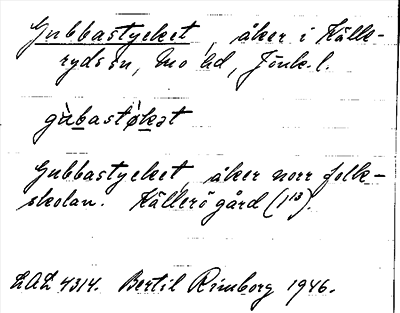 Gubbastycket, åker i Källe-
ryds sn, Mo hd, Jönk. l.
gùbastǿkət
Gubbastycket, åker norr folk-
skolan. Källerö gård (1¹³).
LAL 4314. Bertil Rimborg 1946.